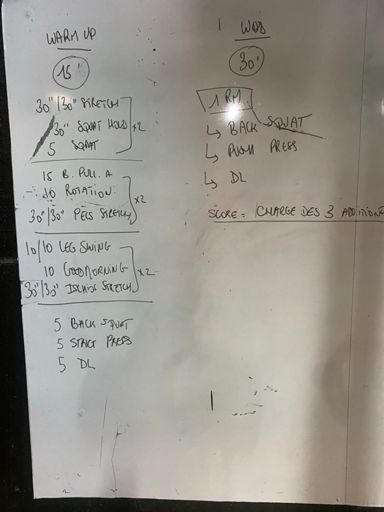 WARM UP
15'
30"/30" STRETCH
30" SQUAT HOLD x2
5 SQUAT
15 B. PULL. A
10 ROTATION x2
30"/30" PECS STRETCH
10/10 LEG SWING
10 GOODMORNING x2
30"/30" ISCHIO STRETCH
5 BACK SQUAT
5 STRICT PRESS
5 DL
WOD
30'
1 RM
↳ BACK SQUAT
↳ PUSH PRESS
↳ DL
SCORE = CHARGE DES 3 ADDITIONE